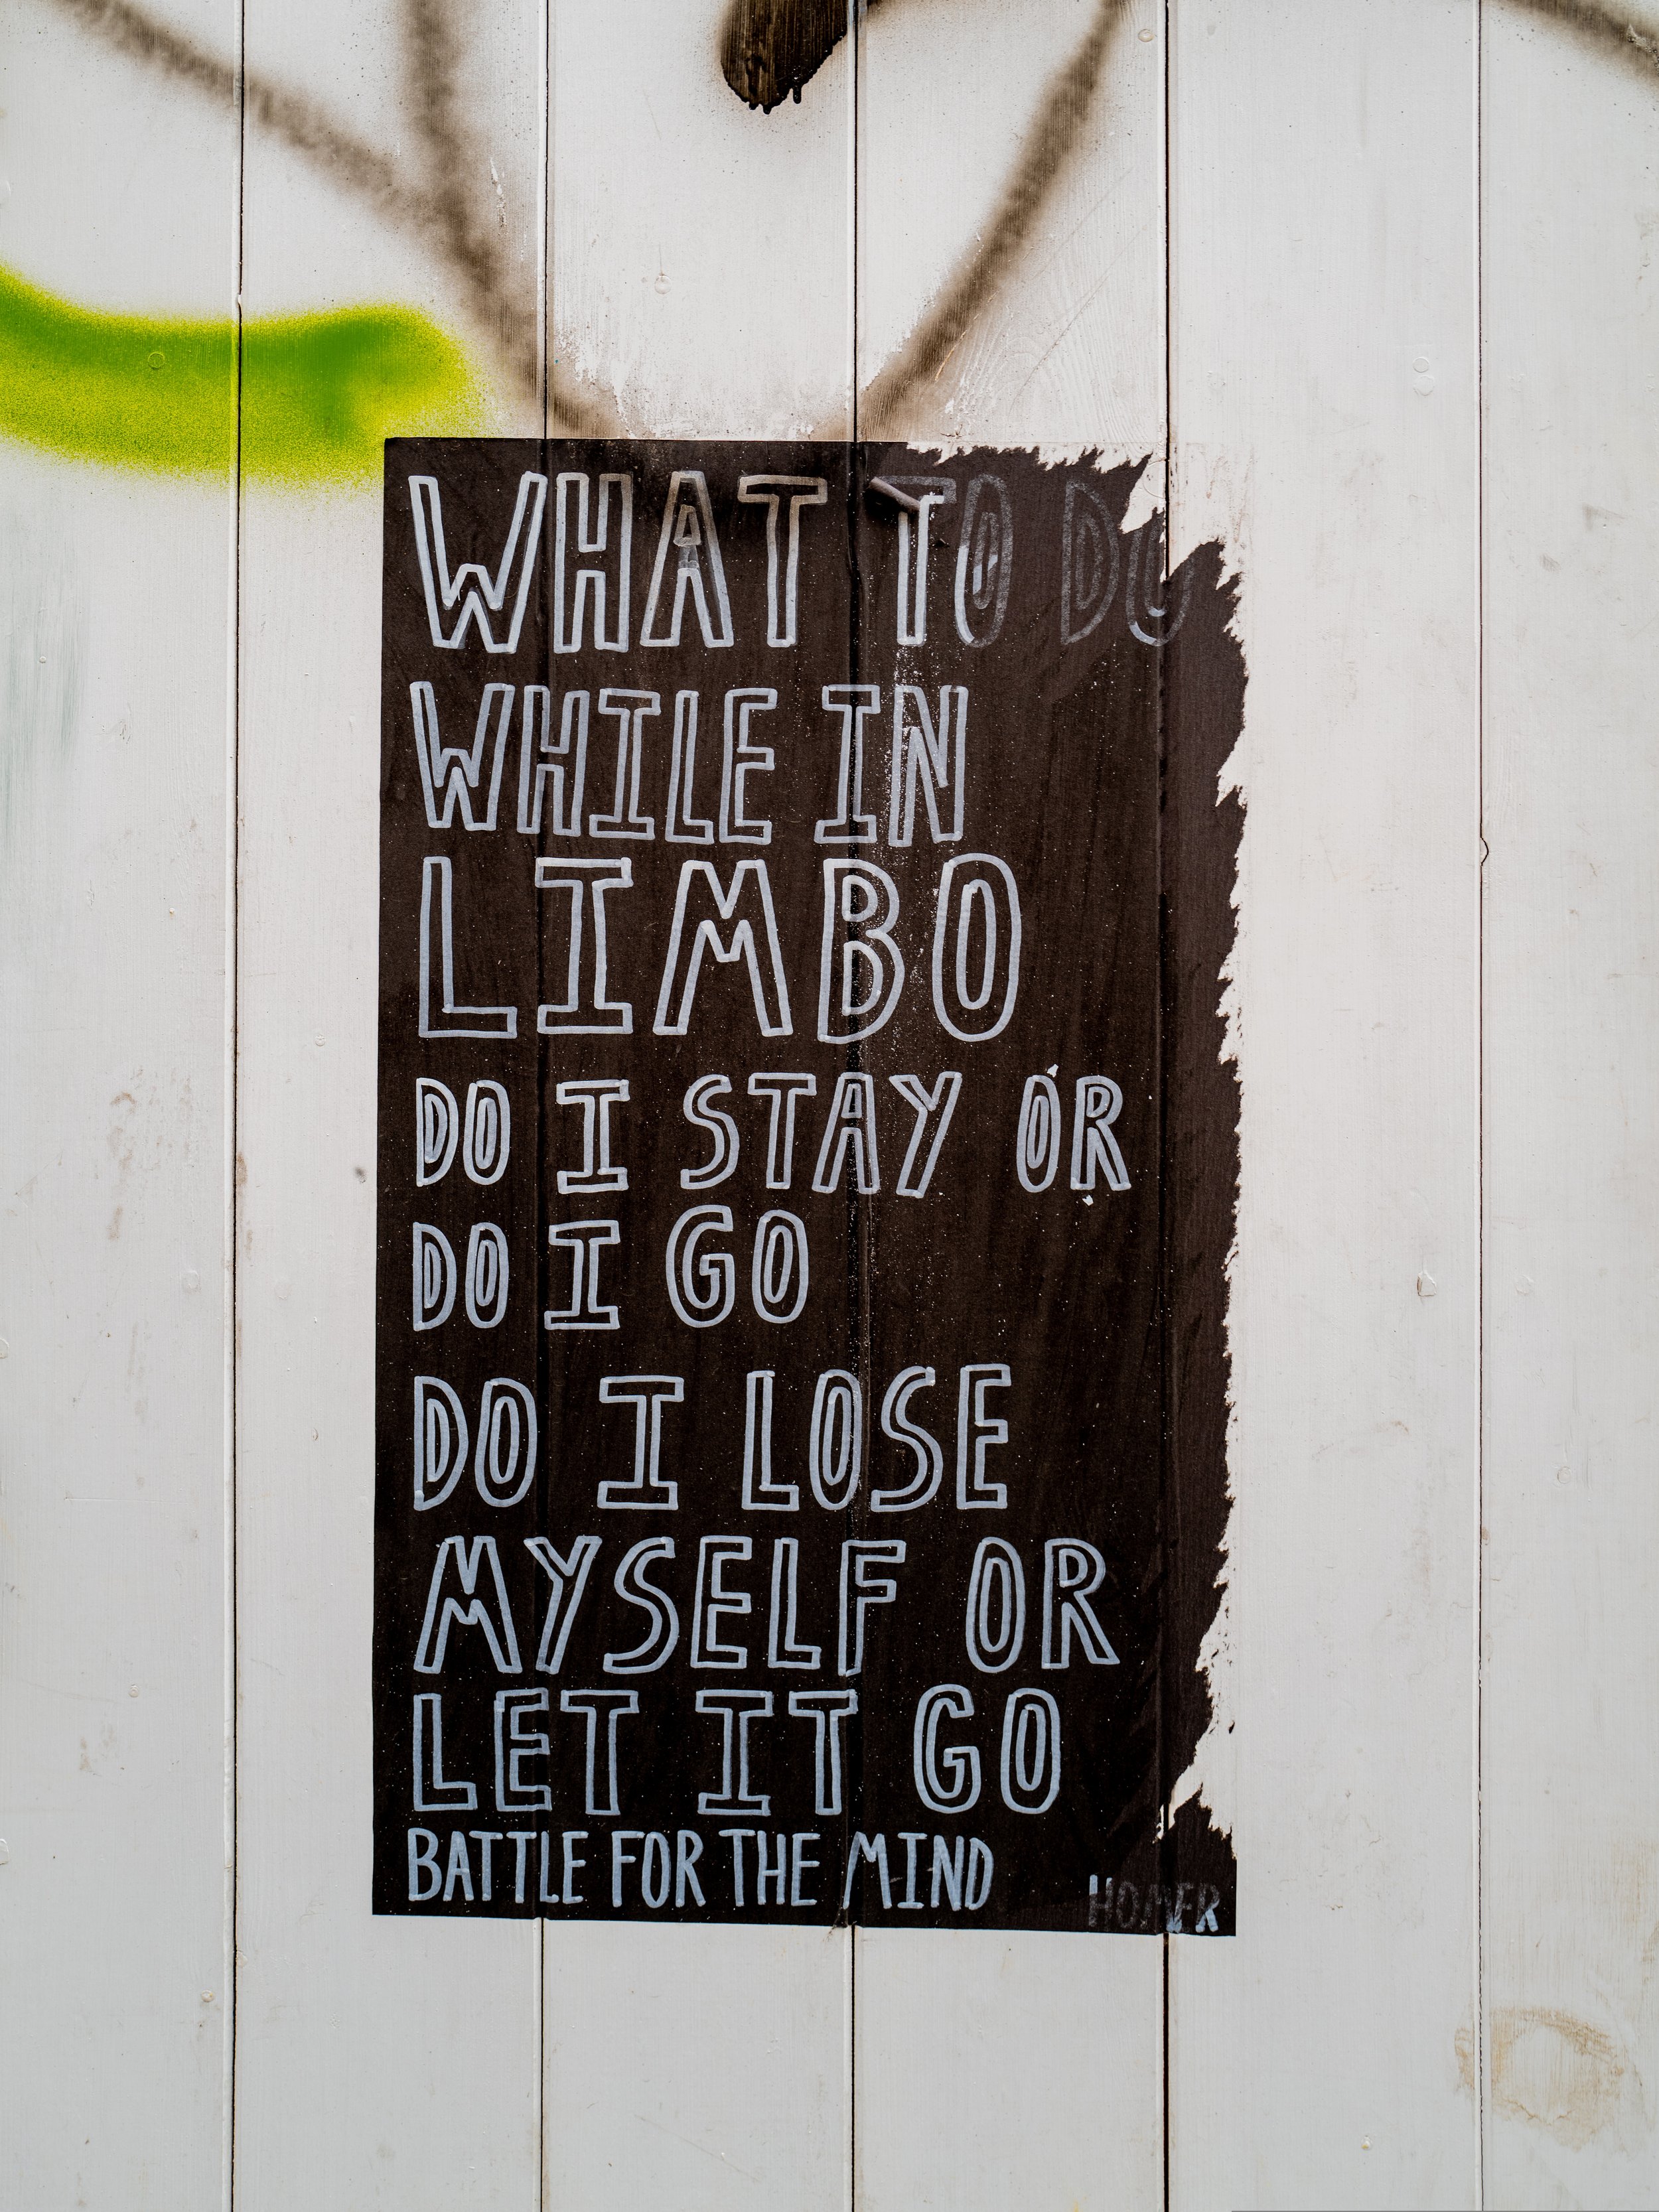 WHAT TO DO
WHILE IN
LIMBO
DO I STAY OR
DO I GO
DO I LOSE
MYSELF OR
LET IT GO
BATTLE FOR THE MIND
HOMER